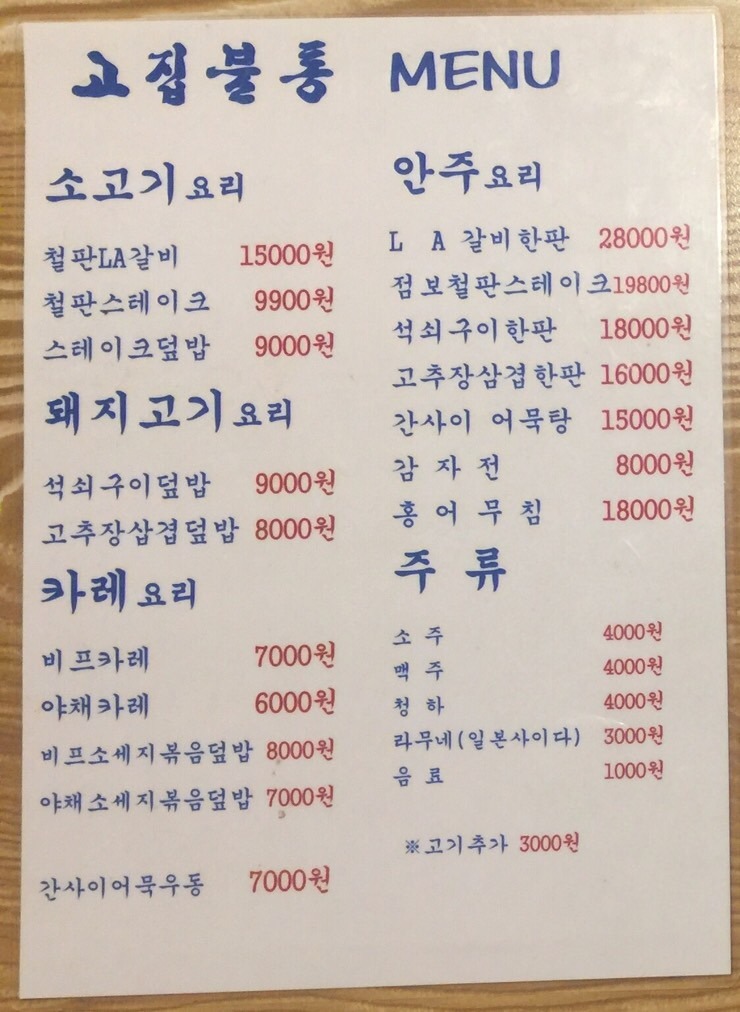 고집불통 MENU
소고기요리
철판LA갈비 15000원
철판스테이크 9900원
스테이크덮밥 9000원
돼지고기요리
석쇠구이덮밥 9000원
고추장삼겹덮밥 8000원
카레요리
비프카레 7000원
야채카레 6000원
비프소세지볶음덮밥 8000원
야채소세지볶음덮밥 7000원
간사이어묵우동 7000원
안주요리
L A 갈비한판 28000원
점보철판스테이크 19800원
석쇠구이한판 18000원
고추장삼겹한판 16000원
간사이 어묵탕 15000원
감 자 전 8000원
홍 어 무 침 18000원
주 류
소 주 4000원
맥 주 4000원
청 하 4000원
라무네(일본사이다) 3000원
음 료 1000원
※고기추가 3000원